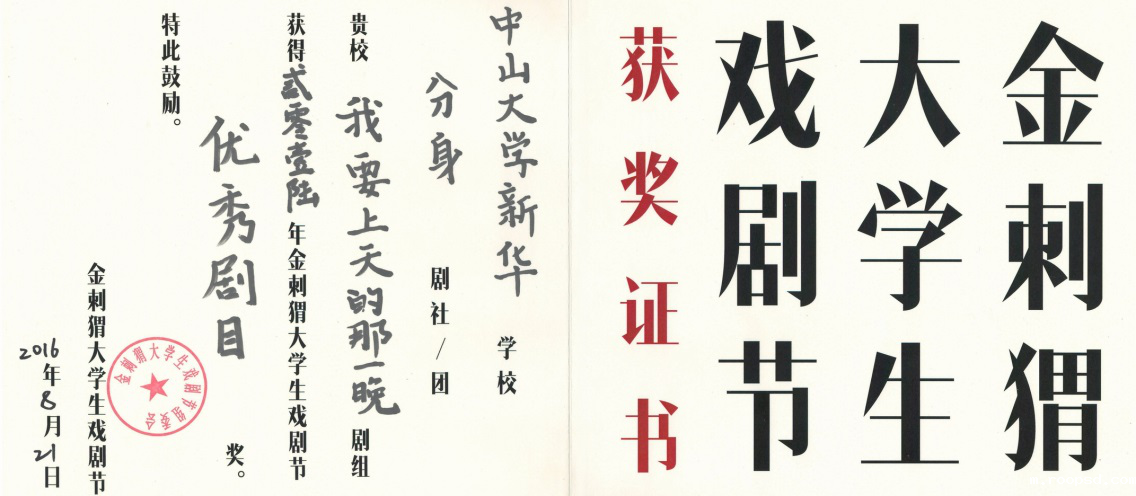 金刺猬
大学生
戏剧节
获奖证书
中山大学新华 学校
分身 剧社/团
贵校 我要上天的那一晚 剧组
获得贰零壹陆年金刺猬大学生戏剧节
优秀剧目 奖。
特此鼓励。
金刺猬大学生戏剧节
2016年8月21日
金刺猬大学生戏剧节组委会